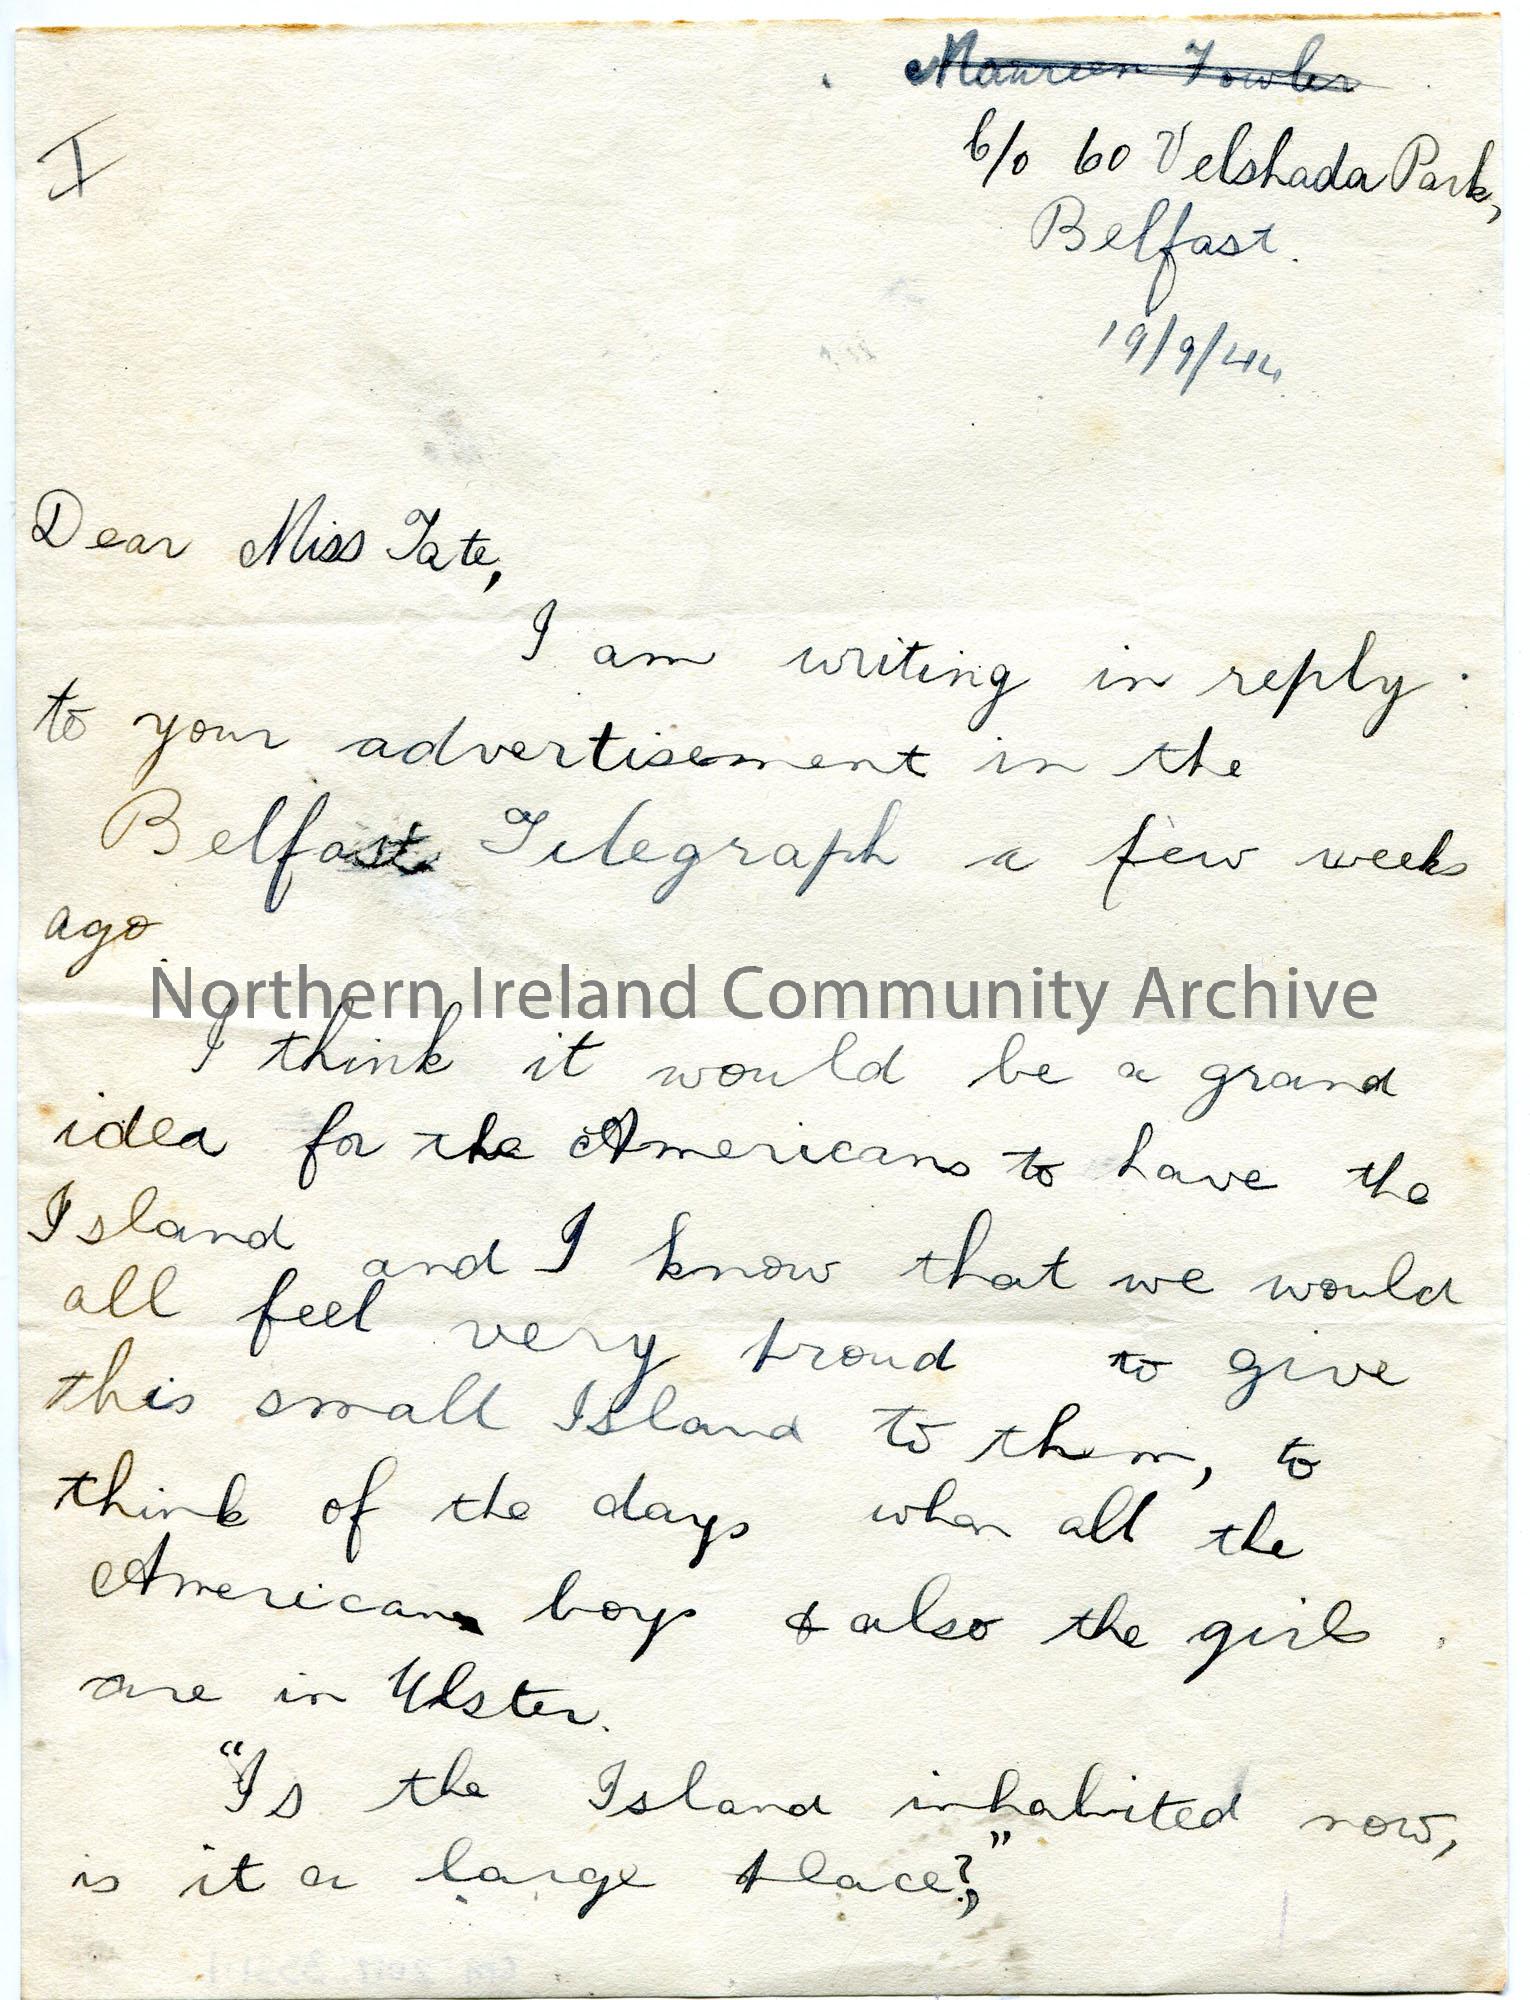 Maureen Fowler
I
c/o 60 Velshada Park,
Belfast.
19/9/44
Dear Miss Tate,
I am writing in reply
to your advertisement in the
Belfast Telegraph a few weeks
ago.
Northern Ireland Community Archive
I think it would be a grand
idea for the Americans to have the
Island and I know that we would
all feel very proud to give
this small Island to them, to
think of the days when all the
American boys & also the girls
are in Ulster.
"Is the Island inhabited now,
is it a large place?,"